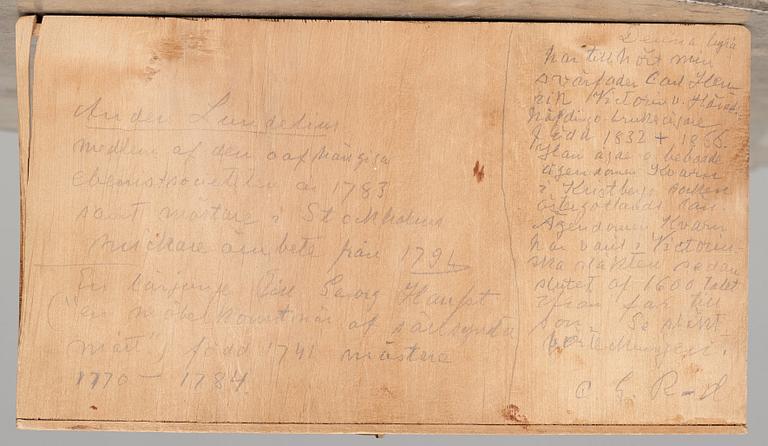 Anders Lundelius
medlem af den oafhängiga
ebenistsocieteten år 1783
samt mästare i Stockholms
snickare ämbete från 1791
En lärjunge till Georg Haupt
("en möbelkonstnär af sällsynta
mått"), född 1741 mästare
1770 - 1784.
Denna byrå
har tillhört min
svärfader Carl Hen
rik Victorin v. Härads
höfding o. bruksegare
född 1832 + 1866.
Han ägde o bebodde
ägendomen Kvarn
i Kristbergs socken
östergötlands län.
Ägendomen Kvarn
har varit i Victorin-
ska släkten sedan
slutet af 1600 talet
från far till
son. Se släkt
C G R-d